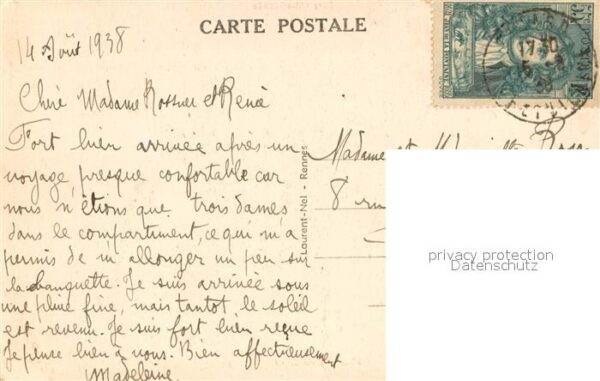 CARTE POSTALE
14 Août 1938
Chère Madame Rossier et Renée
Fort bien arrivée après un
voyage presque confortable car
nous n'étions que trois dames
dans le compartiment, ce qui m'a
permis de m'allonger un peu sur
la banquette. Je suis arrivée sous
une pluie fine, mais tantot le soleil
est revenu. Je suis fort bien reçue
Je pense bien à vous. Bien affectueusement
Madeleine
Laurent-Nel - Rennes
Madame et
8 rue
privacy protection
Datenschutz